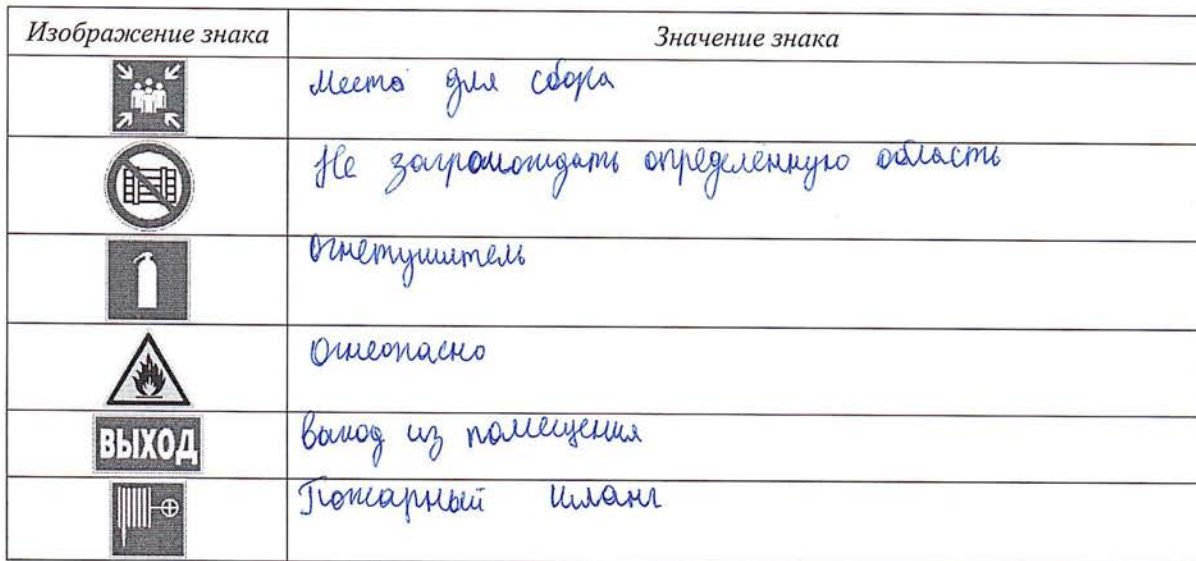 Изображение знака
Значение знака
Место для сбора
Не загромождать определённую область
Огнетушитель
Огнеопасно
ВЫХОД
Выход из помещения
Пожарный шланг